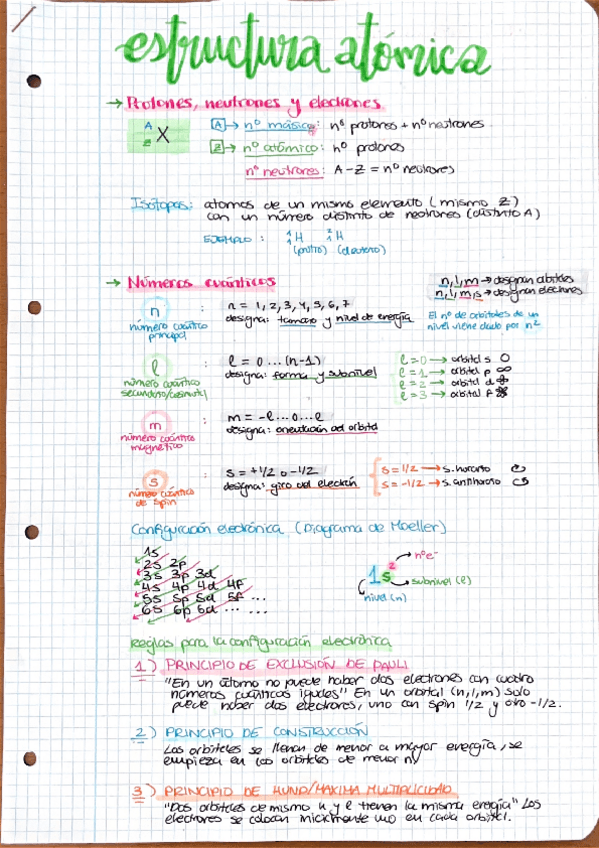 estructura atómica
→ Protones, neutrones y electrones
A
Z X
A → nº másico: nº protones + nº neutrones
Z → nº atómico: nº protones
nº neutrones: A - Z = nº neutrones
Isótopos: atomos de un mismo elemento (mismo Z)
con un número distinto de neutrones (distinto A)
EJEMPLO: ¹₁H ²₁H
(protio) (deuterio)
→ Números cuánticos
n, l, m → designan orbitales
n, l, m, s → designan electrones
n : n = 1, 2, 3, 4, 5, 6, 7
número cuántico principal
designa: tamaño y nivel de energía
El nº de orbitales de un
nivel viene dado por n²
l : l = 0 ... (n-1)
número cuántico
designa: forma y subnivel
l = 0 → orbital s
l = 1 → orbital p
l = 2 → orbital d
l = 3 → orbital f
m : m = -l ... 0 ... l
número cuántico magnético
designa: orientación del orbital
s : s = +1/2 o -1/2
número cuántico de spin
designa: giro del electrón
s = 1/2 → s. horario
s = -1/2 → s. antihorario
Configuración electrónica (Diagrama de Moeller)
1s
2s 2p
3s 3p 3d
4s 4p 4d 4f
5s 5p 5d 5f ...
6s 6p 6d ... ...
1s²
→ nºe⁻
→ subnivel (l)
nivel (n)
Reglas para la configuración electrónica
1) PRINCIPIO DE EXCLUSIÓN DE PAULI
"En un átomo no puede haber dos electrones con cuatro
números cuánticos iguales" En un orbital (n, l, m) solo
puede haber dos electrones, uno con spin 1/2 y otro -1/2.
2) PRINCIPIO DE CONSTRUCCIÓN
Los orbitales se llenan de menor a mayor energía, se
empieza en los orbitales de menor n
3) PRINCIPIO DE HUND/MAXIMA MULTIPLICIDAD
"Dos orbitales de mismo n y l tienen la misma energía" Los
electrones se colocan inicialmente uno en cada orbital.